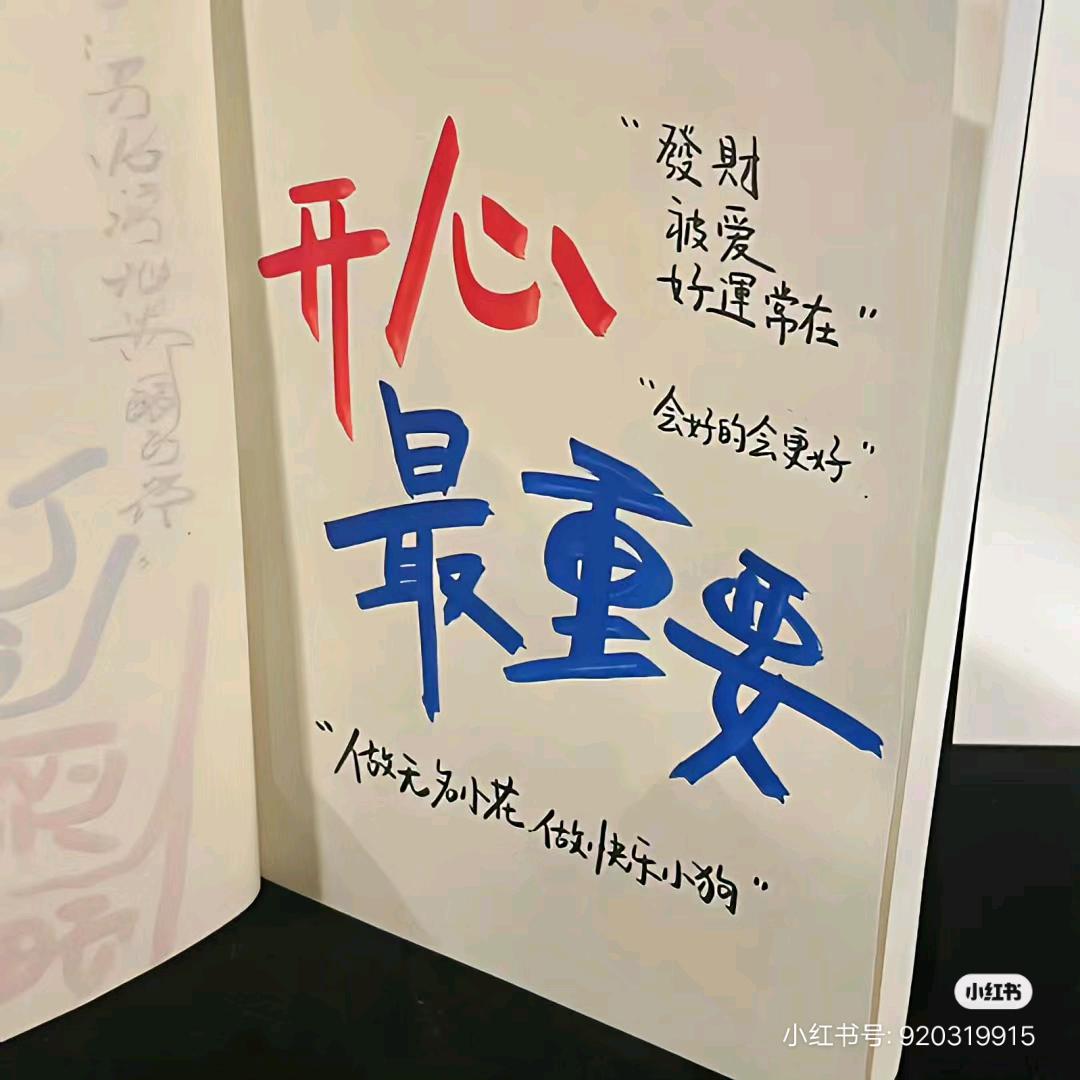 开心
最重要
"發財
被爱
好運常在"
"会好的会更好"
"做无名小花 做快乐小狗"
小红书
小红书号: 920319915